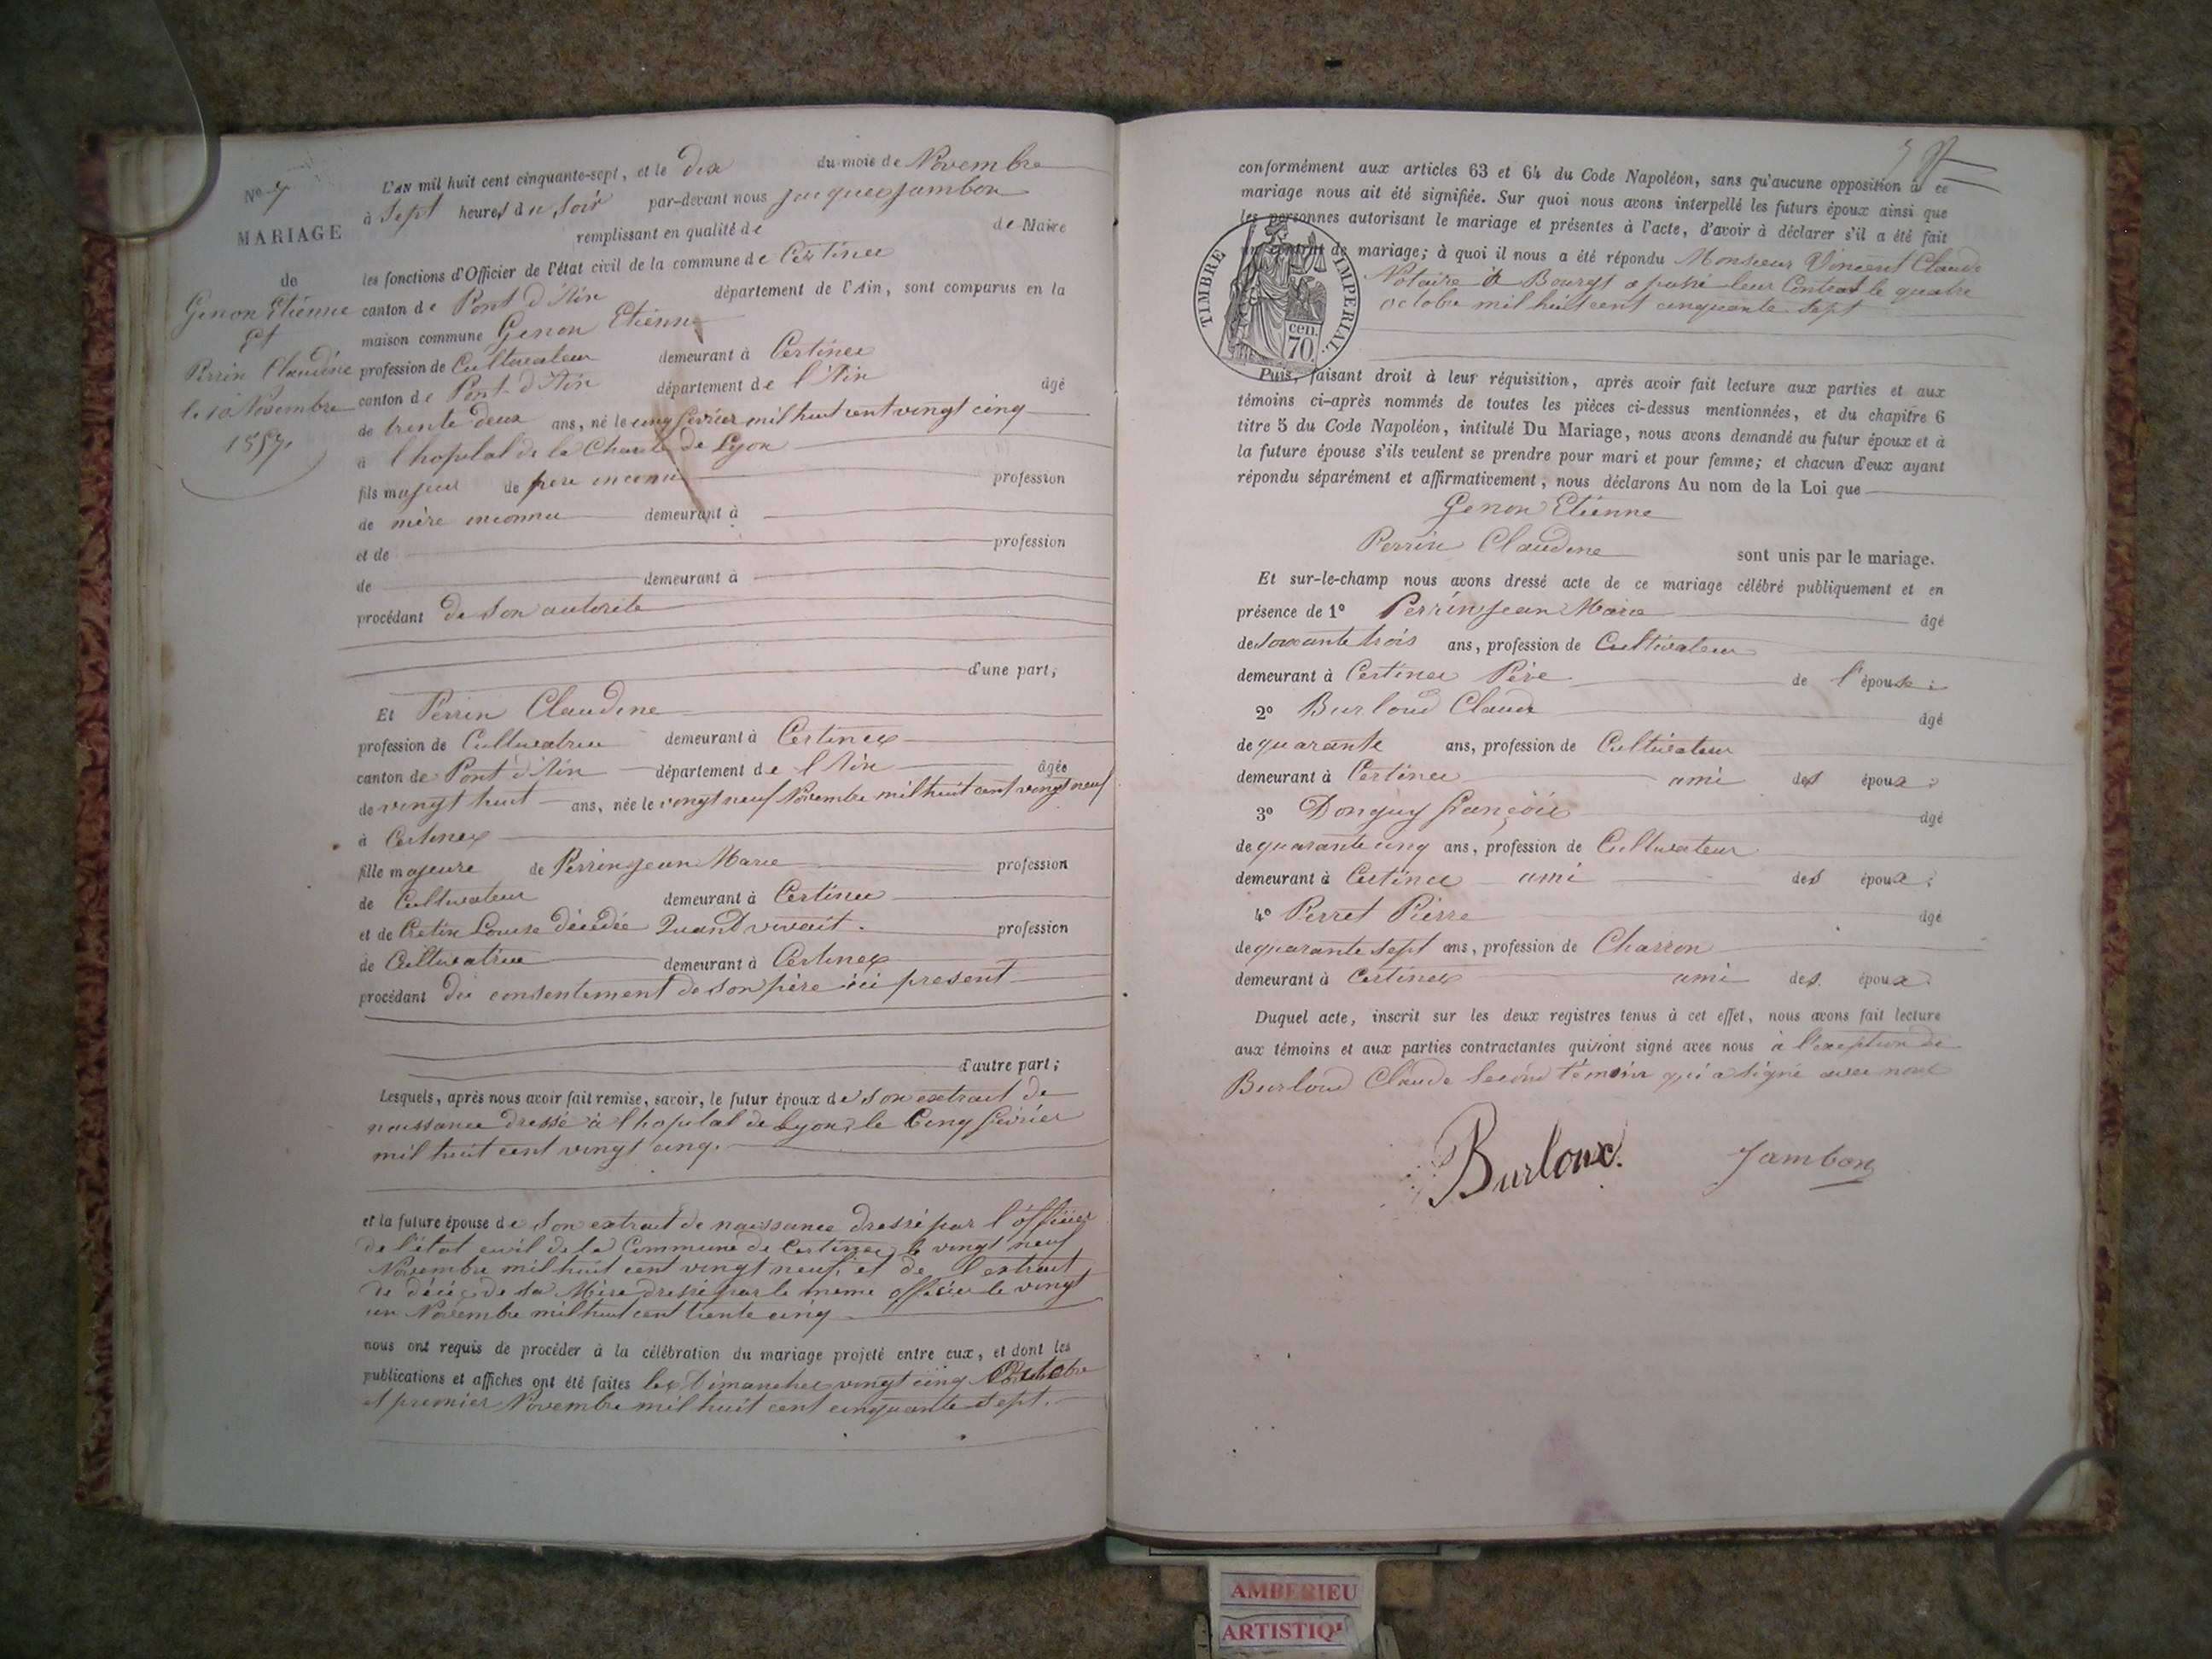 No 7
MARIAGE
de
Genon Etienne
et
Perrin Claudine
le 10 Novembre
1857.
L'AN mil huit cent cinquante-sept, et le dix du mois de Novembre
à Sept heures du soir par-devant nous Jacques Jambon
remplissant en qualité de de Maire
les fonctions d'Officier de l'état civil de la commune de Certines
canton de Pont d'Ain département de l'Ain, sont comparus en la
maison commune Genon Etienne
profession de Cultivateur demeurant à Certines
canton de Pont d'Ain département de l'Ain âgé
de trente deux ans, né le cinq février mil huit cent vingt cinq
à l'hopital de la Charité de Lyon
fils majeur de père inconnu profession
de mère inconnue demeurant à
et de profession
de demeurant à
procédant de son autorité
d'une part;
Et Perrin Claudine
profession de Cultivatrice demeurant à Certines
canton de Pont d'Ain département de l'Ain âgée
de vingt huit ans, née le vingt neuf Novembre mil huit cent vingt neuf
à Certines
fille majeure de Perrin Jean Marie profession
de Cultivateur demeurant à Certines
et de Cretin Louise décédée Quand vivait. profession
de Cultivatrice demeurant à Certines
procédant du consentement de son père ici présent
d'autre part;
Lesquels, après nous avoir fait remise, savoir, le futur époux de son extrait de
naissance dressé à l'hopital de Lyon, le Cinq février
mil huit cent vingt cinq.
et la future épouse de son extrait de naissance dressé par l'officier
de l'état civil de la Commune de Certines le vingt neuf
Novembre mil huit cent vingt neuf, et de l'extrait
de décès de sa Mère dressé par le meme officier le vingt
un Novembre mil huit cent trente cinq
nous ont requis de procéder à la célébration du mariage projeté entre eux, et dont les
publications et affiches ont été faites les Dimanches vingt cinq Octobre
et premier Novembre mil huit cent cinquante sept.
conformément aux articles 63 et 64 du Code Napoléon, sans qu'aucune opposition à ce
mariage nous ait été signifiée. Sur quoi nous avons interpellé les futurs époux ainsi que
les personnes autorisant le mariage et présentes à l'acte, d'avoir à déclarer s'il a été fait
un contrat de mariage; à quoi il nous a été répondu Monsieur Vincent Claude
Notaire à Bourg a passé leur Contrat le quatre
octobre mil huit cent cinquante sept
TIMBRE IMPÉRIAL.
cen.
70.
Puis, faisant droit à leur réquisition, après avoir fait lecture aux parties et aux
témoins ci-après nommés de toutes les pièces ci-dessus mentionnées, et du chapitre 6
titre 5 du Code Napoléon, intitulé Du Mariage, nous avons demandé au futur époux et à
la future épouse s'ils veulent se prendre pour mari et pour femme; et chacun d'eux ayant
répondu séparément et affirmativement, nous déclarons Au nom de la Loi que
Genon Etienne
Perrin Claudine sont unis par le mariage.
Et sur-le-champ nous avons dressé acte de ce mariage célébré publiquement et en
présence de 1º Perrin Jean Marie âgé
de soixante trois ans, profession de Cultivateur
demeurant à Certines Père de l'épouse;
2º Burloud Claude âgé
de quarante ans, profession de Cultivateur
demeurant à Certines ami des époux;
3º Donguy François âgé
de quarante cinq ans, profession de Cultivateur
demeurant à Certines ami des époux;
4º Perret Pierre âgé
de quarante sept ans, profession de Charron
demeurant à Certines ami des époux.
Duquel acte, inscrit sur les deux registres tenus à cet effet, nous avons fait lecture
aux témoins et aux parties contractantes qui ont signé avec nous à l'exeption de
Burloud Claude Second témoin qui a signé avec nous
Burloud. Jambon
AMBERIEU
ARTISTIQ